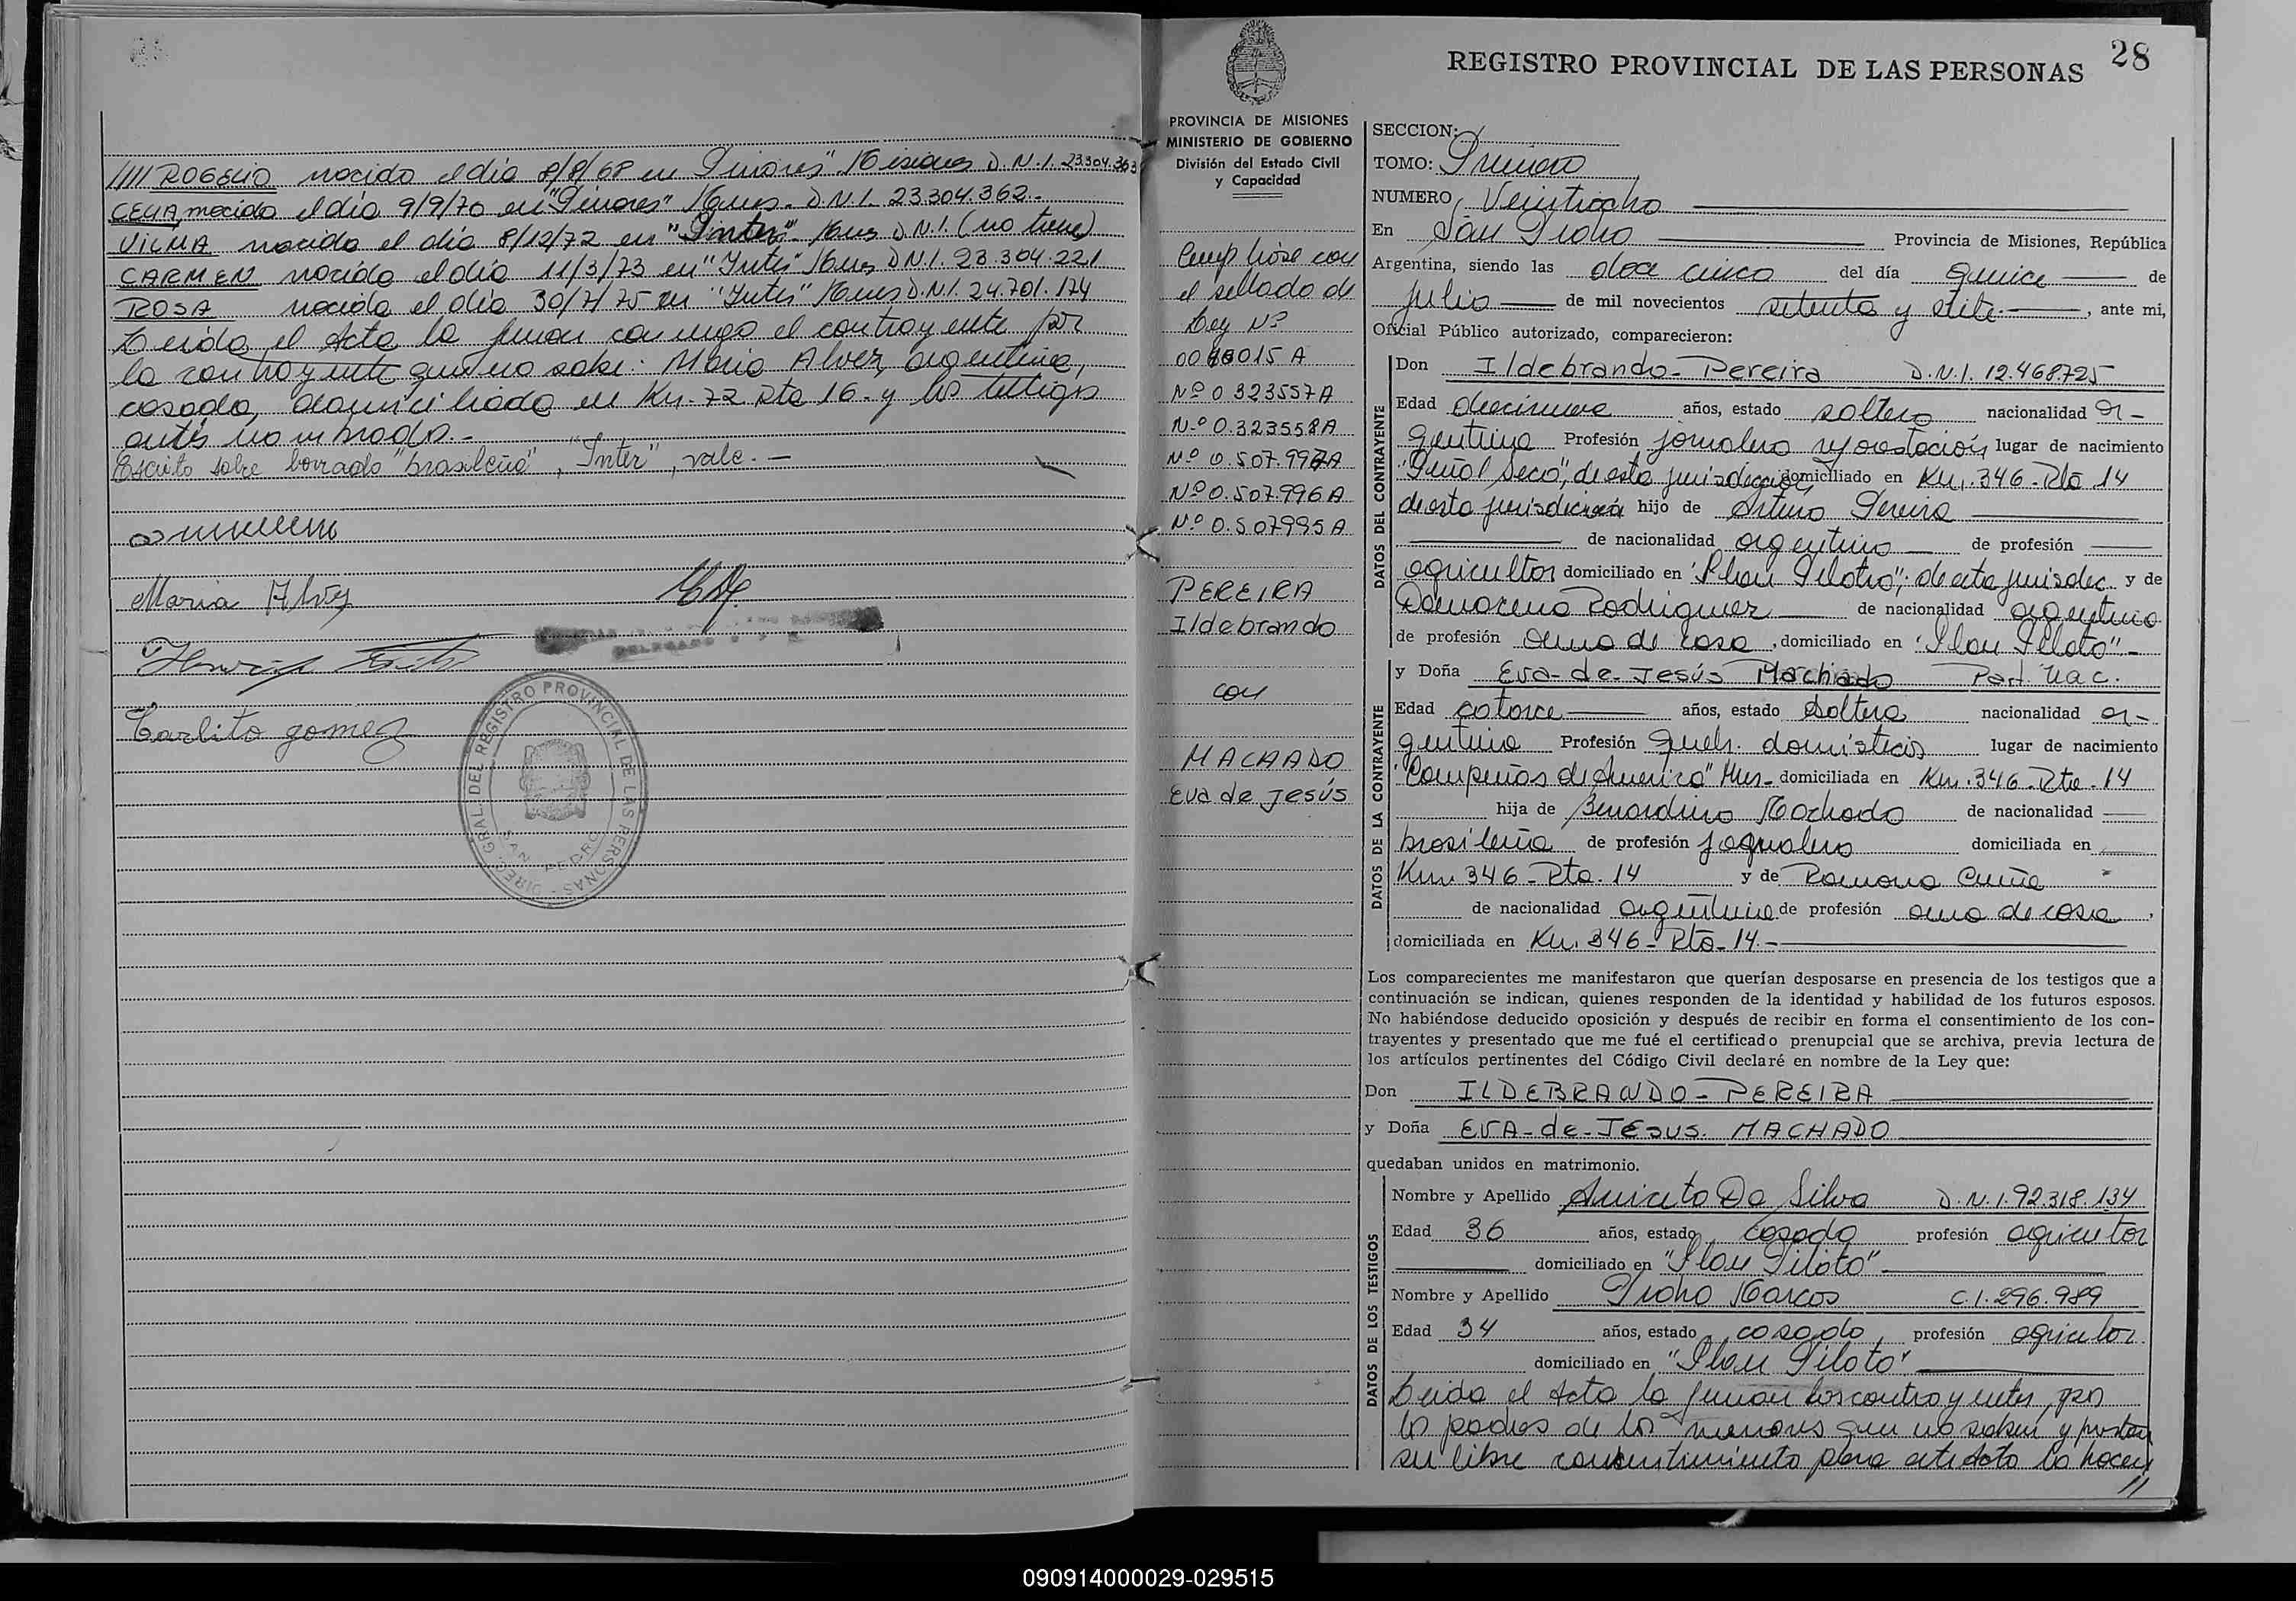 //// ROGELIO nacido el día 8/8/68 en "Pinares" Misiones D.N.I. 23.304.363
CELIA, nacida el día 9/9/70 en "Pinares" Mnes. D.N.I. 23.304.362.-
VILMA nacida el día 8/12/72 en "Inter" Mnes D.N.I. (no tiene)
CARMEN nacida el día 11/3/73 en "Inter" Mnes D.N.I. 23.304.221
ROSA nacida el día 30/7/75 en "Inter" Mnes D.N.I. 24.701.174
Leída el Acta la firman conmigo el contrayente por
la contrayente que no sabe: María Alvez, argentina,
casada, domiciliada en Km. 72 Rta 16.- y los testigos
antes nombrado.-
Escrito sobre borrado "brasileña", "Inter", vale.-
Maria Alvez
Carlito gomez
DIREC. GRAL. DEL REGISTRO PROVINCIAL DE LAS PERSONAS
SAN PEDRO
REGISTRO PROVINCIAL DE LAS PERSONAS
28
PROVINCIA DE MISIONES
MINISTERIO DE GOBIERNO
División del Estado Civil
y Capacidad
Cumpliose con
el sellado de
Ley Nº
015 A
Nº 0 323557 A
Nº 0.323558 A
Nº 0.507.997 A
Nº 0.507.996 A
Nº 0.507995 A
PEREIRA
Ildebrando
con
MACHADO
Eva de Jesús
SECCION:
TOMO: Primero
NUMERO Veintiocho
En San Pedro Provincia de Misiones, República
Argentina, siendo las doce cinco del día quince de
julio de mil novecientos setenta y siete.- , ante mi,
Oficial Público autorizado, comparecieron:
DATOS DEL CONTRAYENTE
Don Ildebrando- Pereira D.N.I. 12.468.725
Edad diecinueve años, estado soltero nacionalidad ar-
gentina Profesión jornalero lugar de nacimiento
"Piñal Seco", de esta jurisdicción domiciliado en Km. 346- Rta 14
de esta jurisdicción hijo de Arturo Pereira
de nacionalidad argentino de profesión
agricultor domiciliado en "Plan Piloto"; de esta jurisdic. y de
Rodriguez de nacionalidad argentina
de profesión ama de casa , domiciliado en "Plan Piloto".-
DATOS DE LA CONTRAYENTE
y Doña Eva- de- Jesús Machado Part. Nac.
Edad catorce años, estado soltera nacionalidad ar-
gentina Profesión Queh. domésticos lugar de nacimiento
"Campiñas de América" Mns- domiciliada en Km. 346- Rta- 14
hija de Bernardino Machado de nacionalidad
brasileña de profesión jornalero domiciliada en
Km 346- Rta. 14 y de Ramona Cuña
de nacionalidad argentina de profesión ama de casa ,
domiciliada en Km. 346- Rta- 14.-
Los comparecientes me manifestaron que querían desposarse en presencia de los testigos que a
continuación se indican, quienes responden de la identidad y habilidad de los futuros esposos.
No habiéndose deducido oposición y después de recibir en forma el consentimiento de los con-
trayentes y presentado que me fué el certificado prenupcial que se archiva, previa lectura de
los artículos pertinentes del Código Civil declaré en nombre de la Ley que:
Don ILDEBRANDO- PEREIRA
y Doña EVA- de- JESUS. MACHADO
quedaban unidos en matrimonio.
DATOS DE LOS TESTIGOS
Nombre y Apellido Aniceto Da Silva D.N.I. 92.318.134
Edad 36 años, estado casado profesión agricultor
domiciliado en "Plan Piloto"
Nombre y Apellido Pedro Marcos C.I. 296.989
Edad 34 años, estado casado , profesión agricultor
domiciliado en "Plan Piloto"
Leída el Acta la firman los contrayentes, por
los padres de los menores que no saben y prestan
su libre consentimiento para este Acto lo hacen
//
090914000029-029515